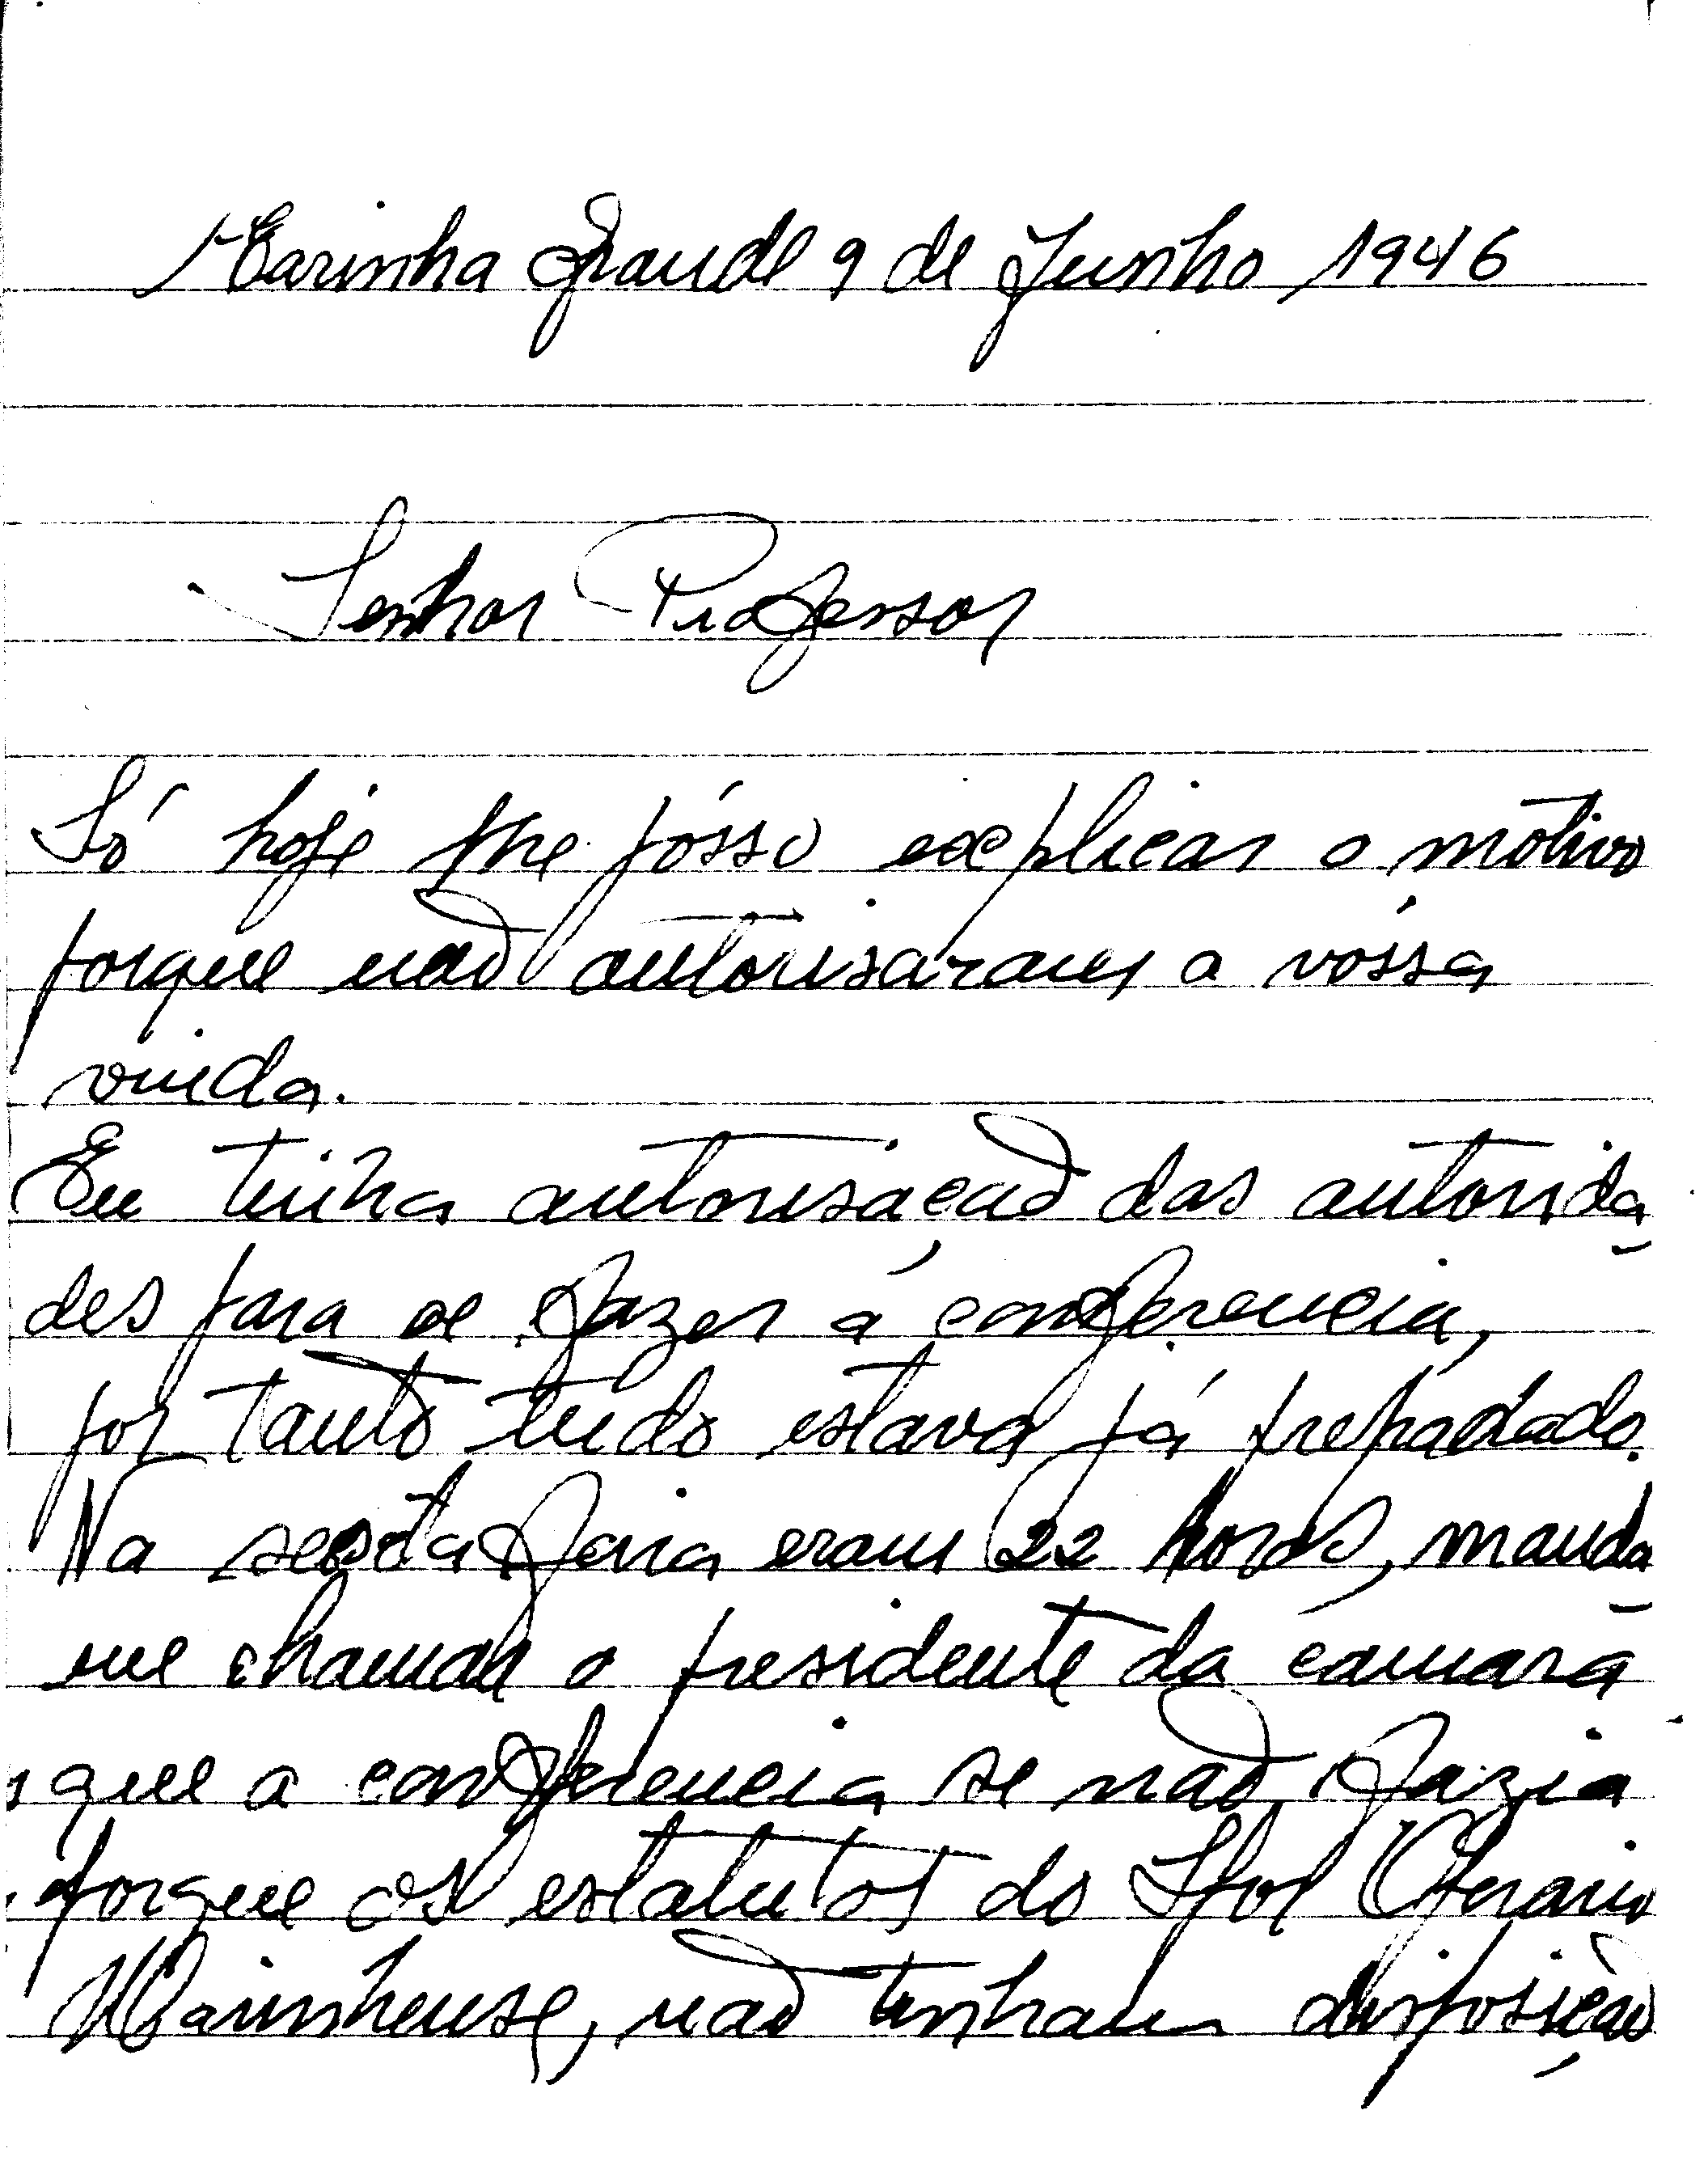 Marinha Grande 9 de Junho 1946
Senhor Professor
Só hoje lhe pósso explicar o motivo
porque não autorisáram a vóssa
vinda.
Eu tinha autorisáção das autorida
des para se fazer a conferencia,
por tanto tudo estava já preparado.
Na sexta feira eram 22 horas, manda
me chamar o presidente da camara
que a conferencia se não fazia
porque os estatutos do Spor Operario
Marinhense, não tinham disposição